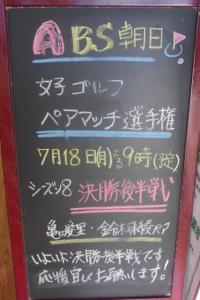 BS朝日
女子ゴルフ
ペアマッチ選手権
7月18日(月)よる9時(放)
シーズン8 決勝後半戦
亀田愛里・金
いよいよ決勝後半戦です
応援宜しくお願いします!